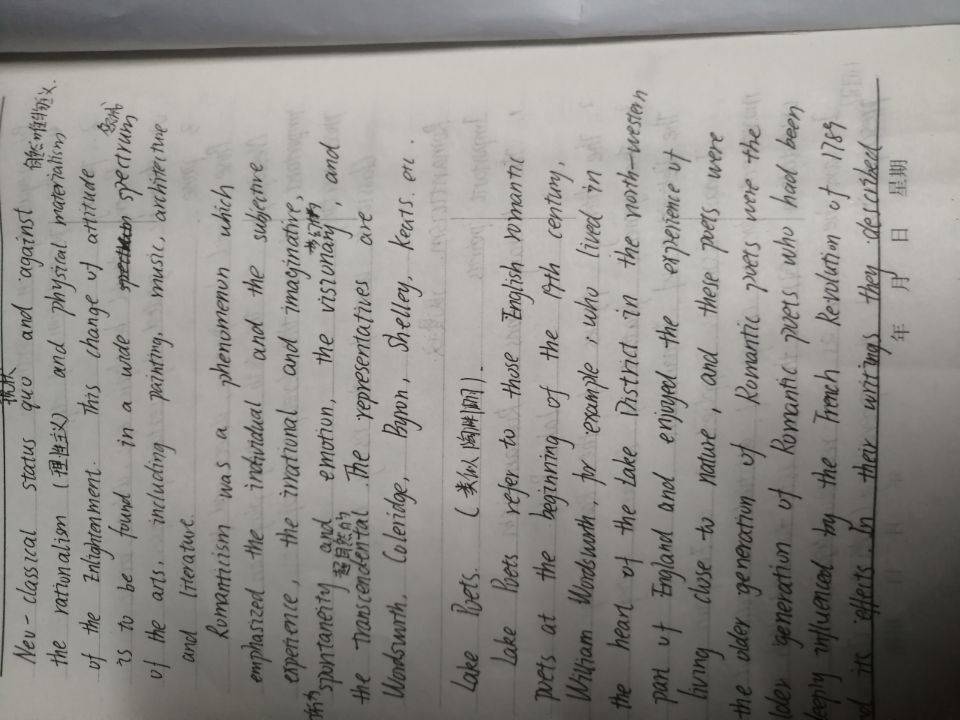 现状
Neu-classical status quo and against
能、唯物主义.
the rationalism (理性主义) and physical materialism
of the Enlightenment. This change of attitude
is to be found in a wide spectrum
of the arts, including painting, music, architecture
and literature.
Romanticism was a phenomenon which
emphasized the individual and the subjective
experience, the irrational and imaginative,
spontaneity and emotion, the visionary, and
超自然的
the transcendental. The representatives are
Wordsworth, Coleridge, Byron, Shelley, Keats. etc.
Lake Poets. (类似陶渊明).
Lake Poets refer to those English romantic
poets at the beginning of the 19th century,
William Wordsworth, for example, who lived in
the heart of the Lake District in the north-western
part of England and enjoyed the experience of
living close to nature, and these poets were
the older generation of Romantic poets were the
older generation of Romantic poets who had been
deeply influenced by the French Revolution of 1789
and its effects. In their writings they described
年 月 日 星期